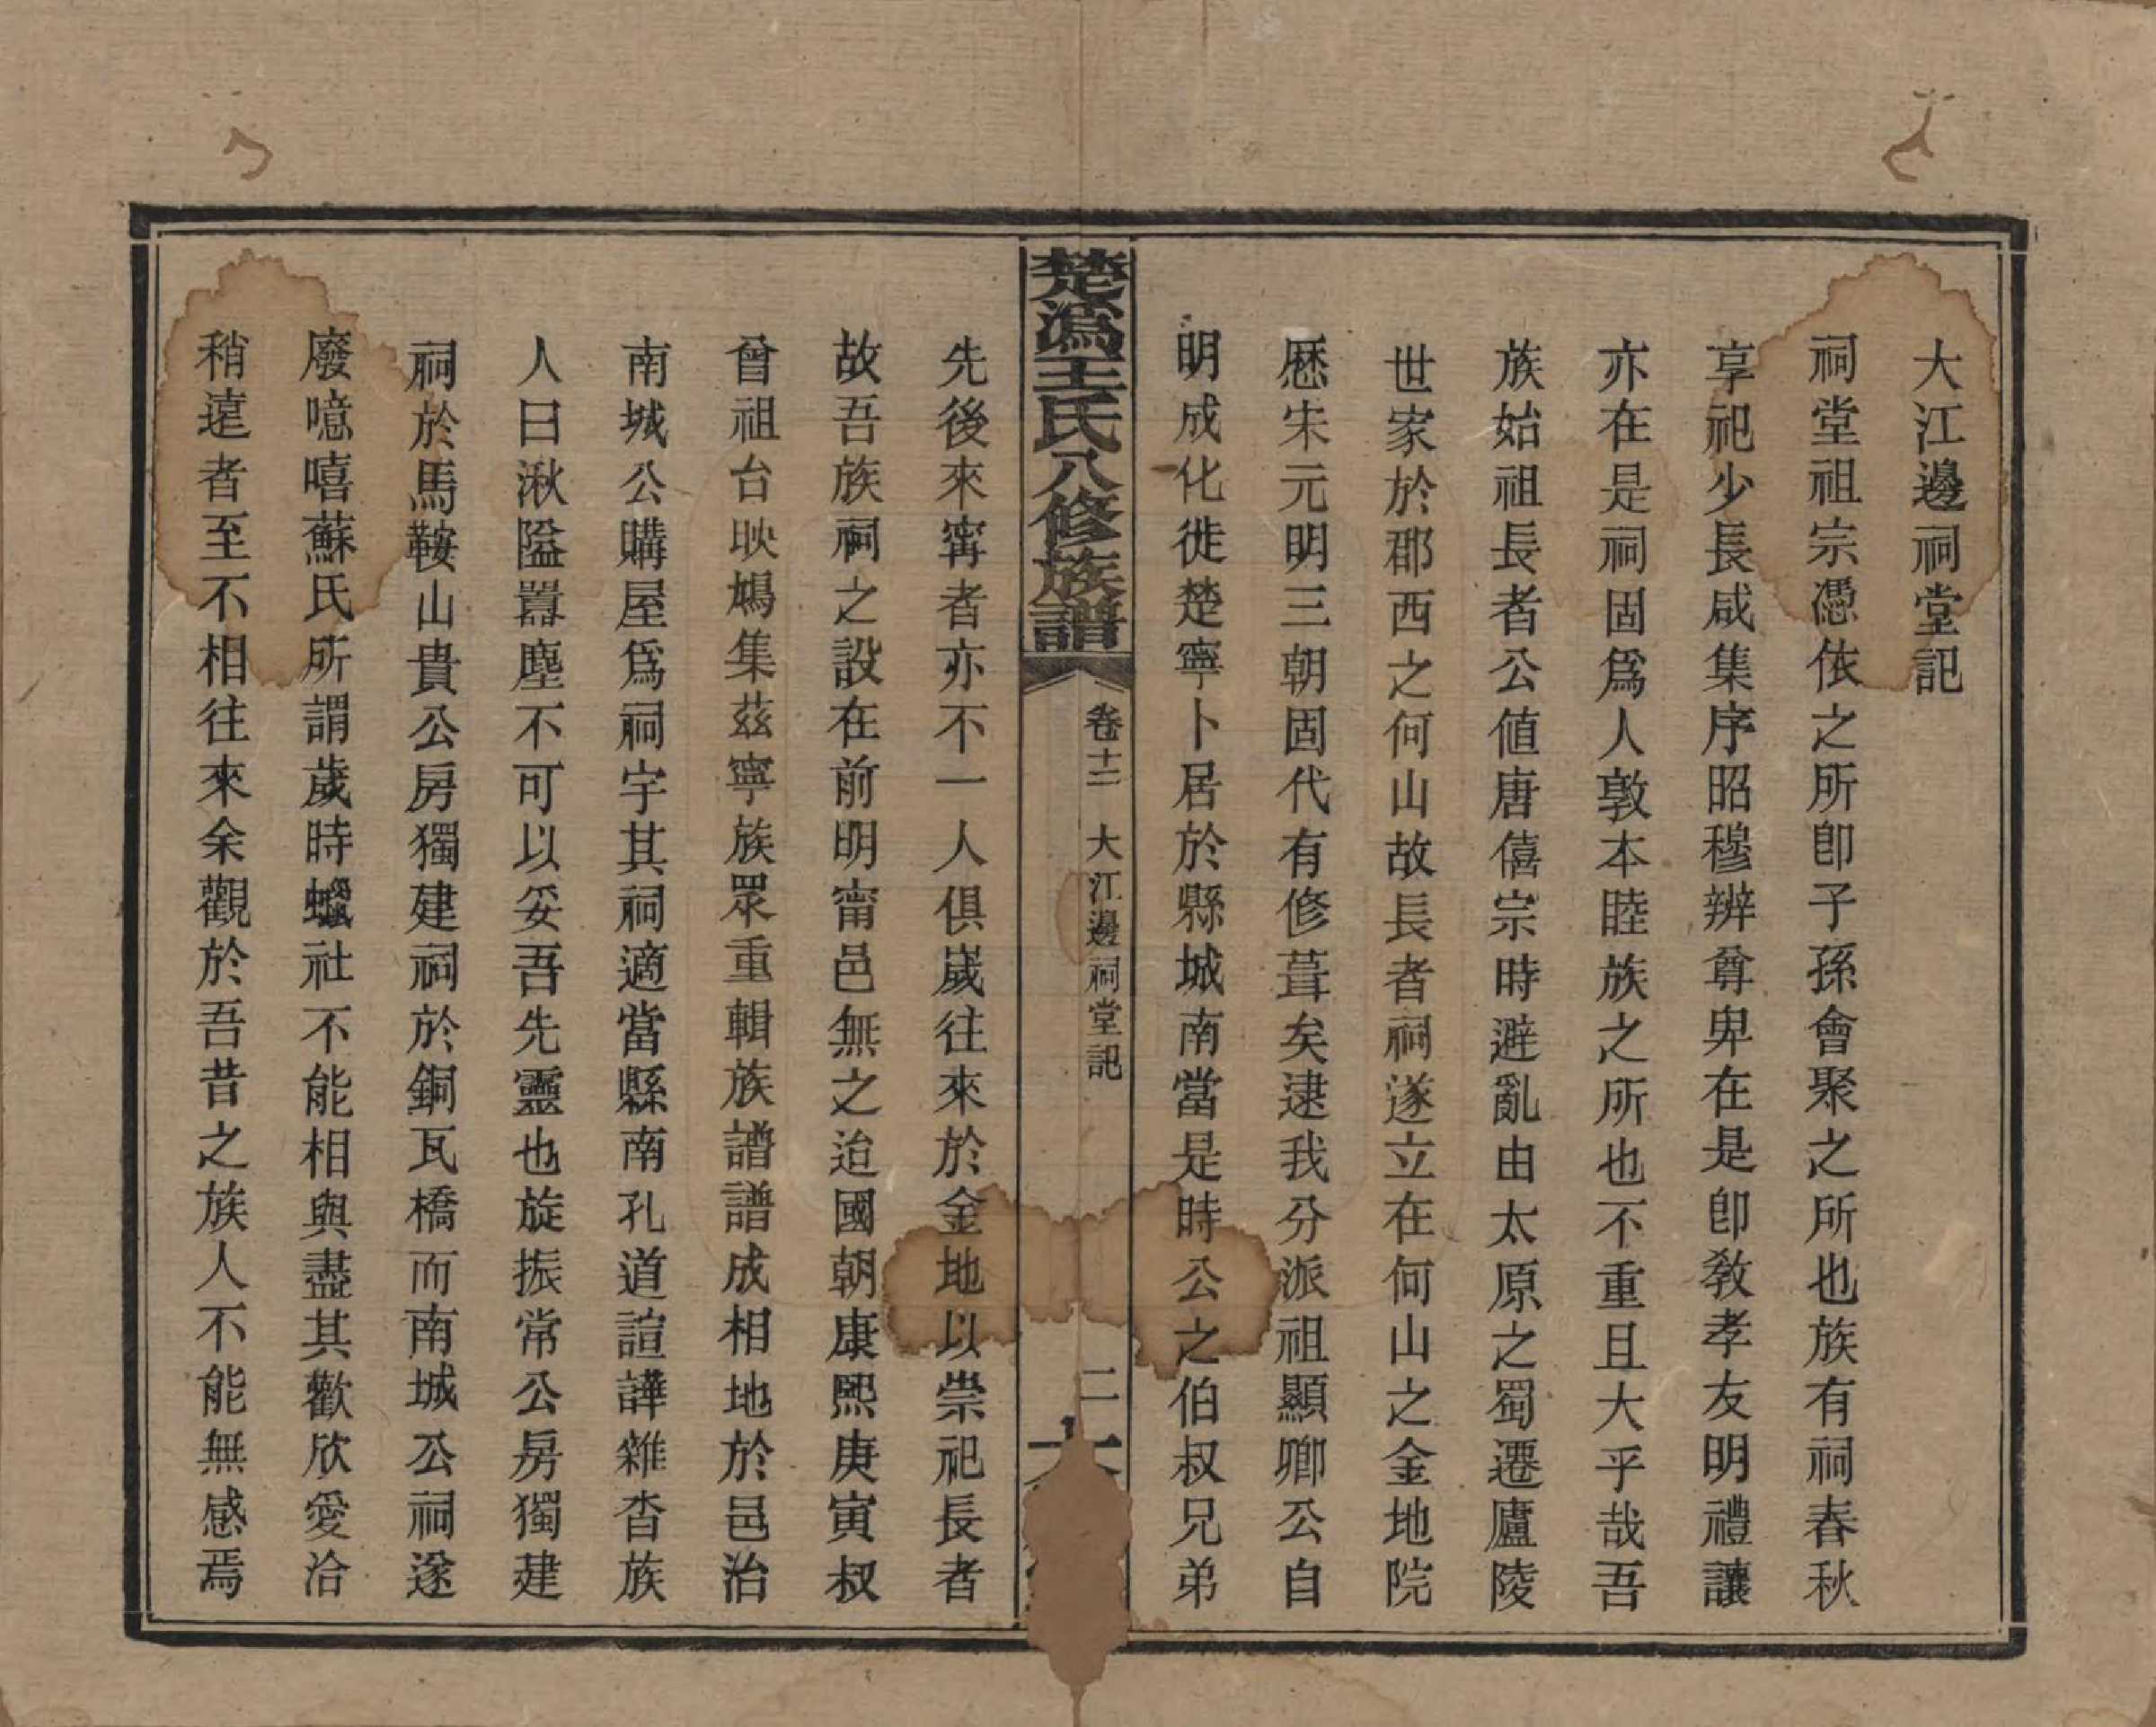 大江邊祠堂記
祠堂祖宗憑依之所卽子孫會聚之所也族有祠春秋
享祀少長咸集序昭穆辨尊卑在是卽敎孝友明禮讓
亦在是祠固爲人敦本睦族之所也不重且大乎哉吾
族始祖長者公値唐僖宗時避亂由太原之蜀遷廬陵
世家於郡西之何山故長者祠遂立在何山之金地院
歷宋元明三朝固代有修葺矣逮我分派祖顯卿公自
明成化徙楚寧卜居於縣城南當是時公之伯叔兄弟
楚溈王氏八修族譜
卷十二 大江邊祠堂記
二
先後來甯者亦不一人俱嵗往來於金地以崇祀長者
故吾族祠之設在前明甯邑無之迨國朝康熙庚寅叔
曾祖台映鳩集茲寧族眾重輯族譜譜成相地於邑治
南城公購屋爲祠宇其祠適當縣南孔道諠譁雜沓族
人曰湫隘囂塵不可以妥吾先靈也旋振常公房獨建
祠於馬鞍山貴公房獨建祠於銅瓦橋而南城公祠遂
廢噫嘻蘇氏所謂歲時蠟社不能相與盡其歡欣愛洽
稍遠者至不相往來余觀於吾昔之族人不能無感焉